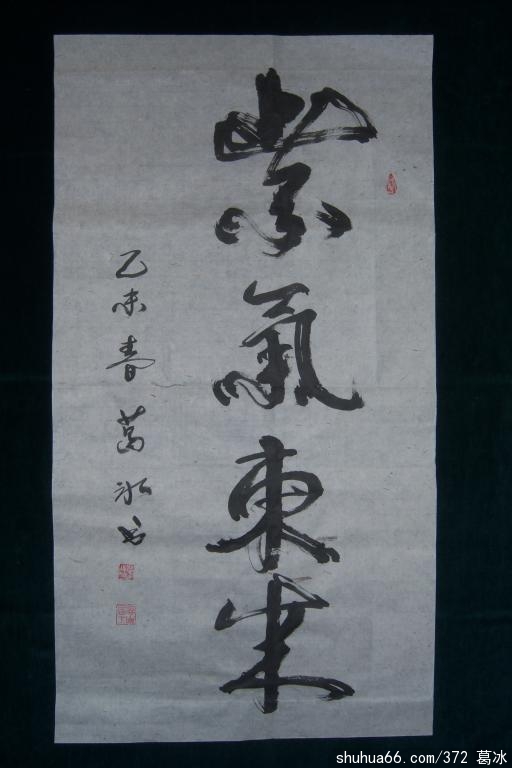 紫氣東来
乙未春葛冰书
shuhua66.com/372 葛冰